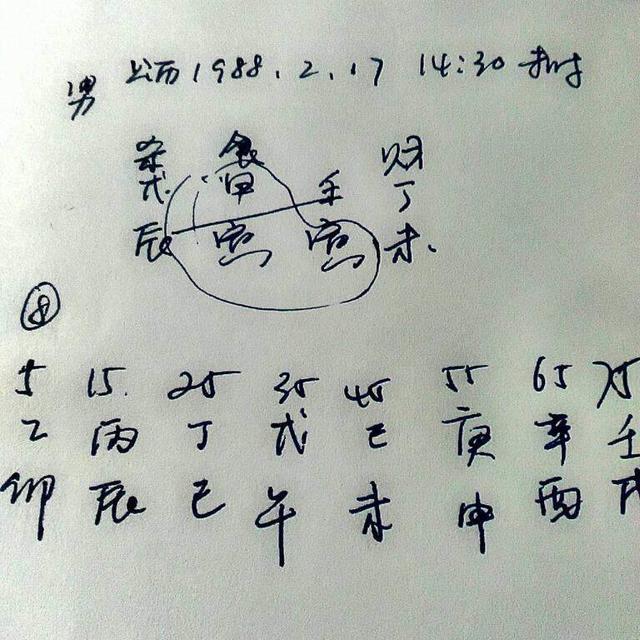 男 公历1988.2.17 14:30 未时
杀 食 财
戊 甲 壬 丁
辰 寅 寅 未.
⑧
5 15. 25 35 45 55 65 75
乙 丙 丁 戊 己 庚 辛 壬
卯 辰 巳 午 未 申 酉 戌